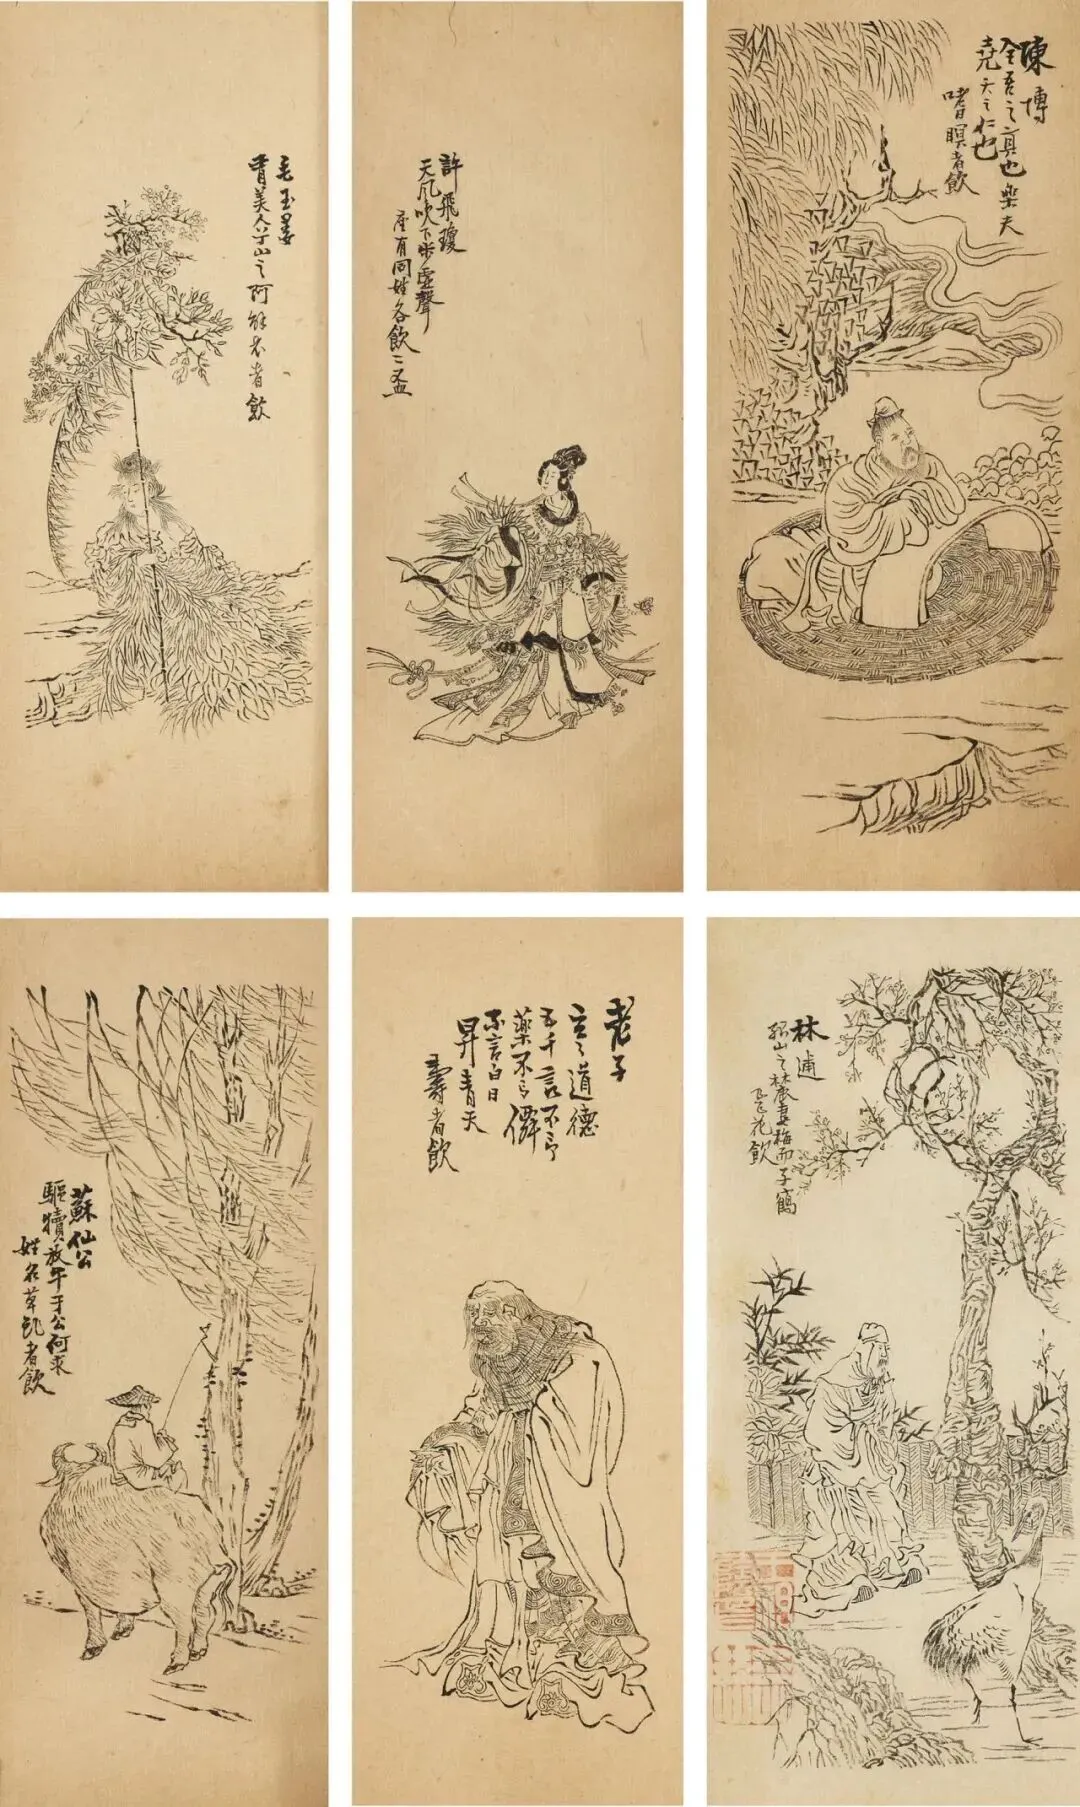 毛玉姜
美人兮山之阿解衣者飲
許飛瓊
天風吹下步虛聲
座有同姓各飲二盃
陳摶
全吾之真也樂夫
堯天之仁也
嗜瞑者飲
蘇仙公
驅犢放牛于公何來
姓名草頭者飲
老子
道德
五千言不言
藥不言僊
不言白日
昇青天
壽者飲
林逋
孤山之妻梅而子鶴
花飲